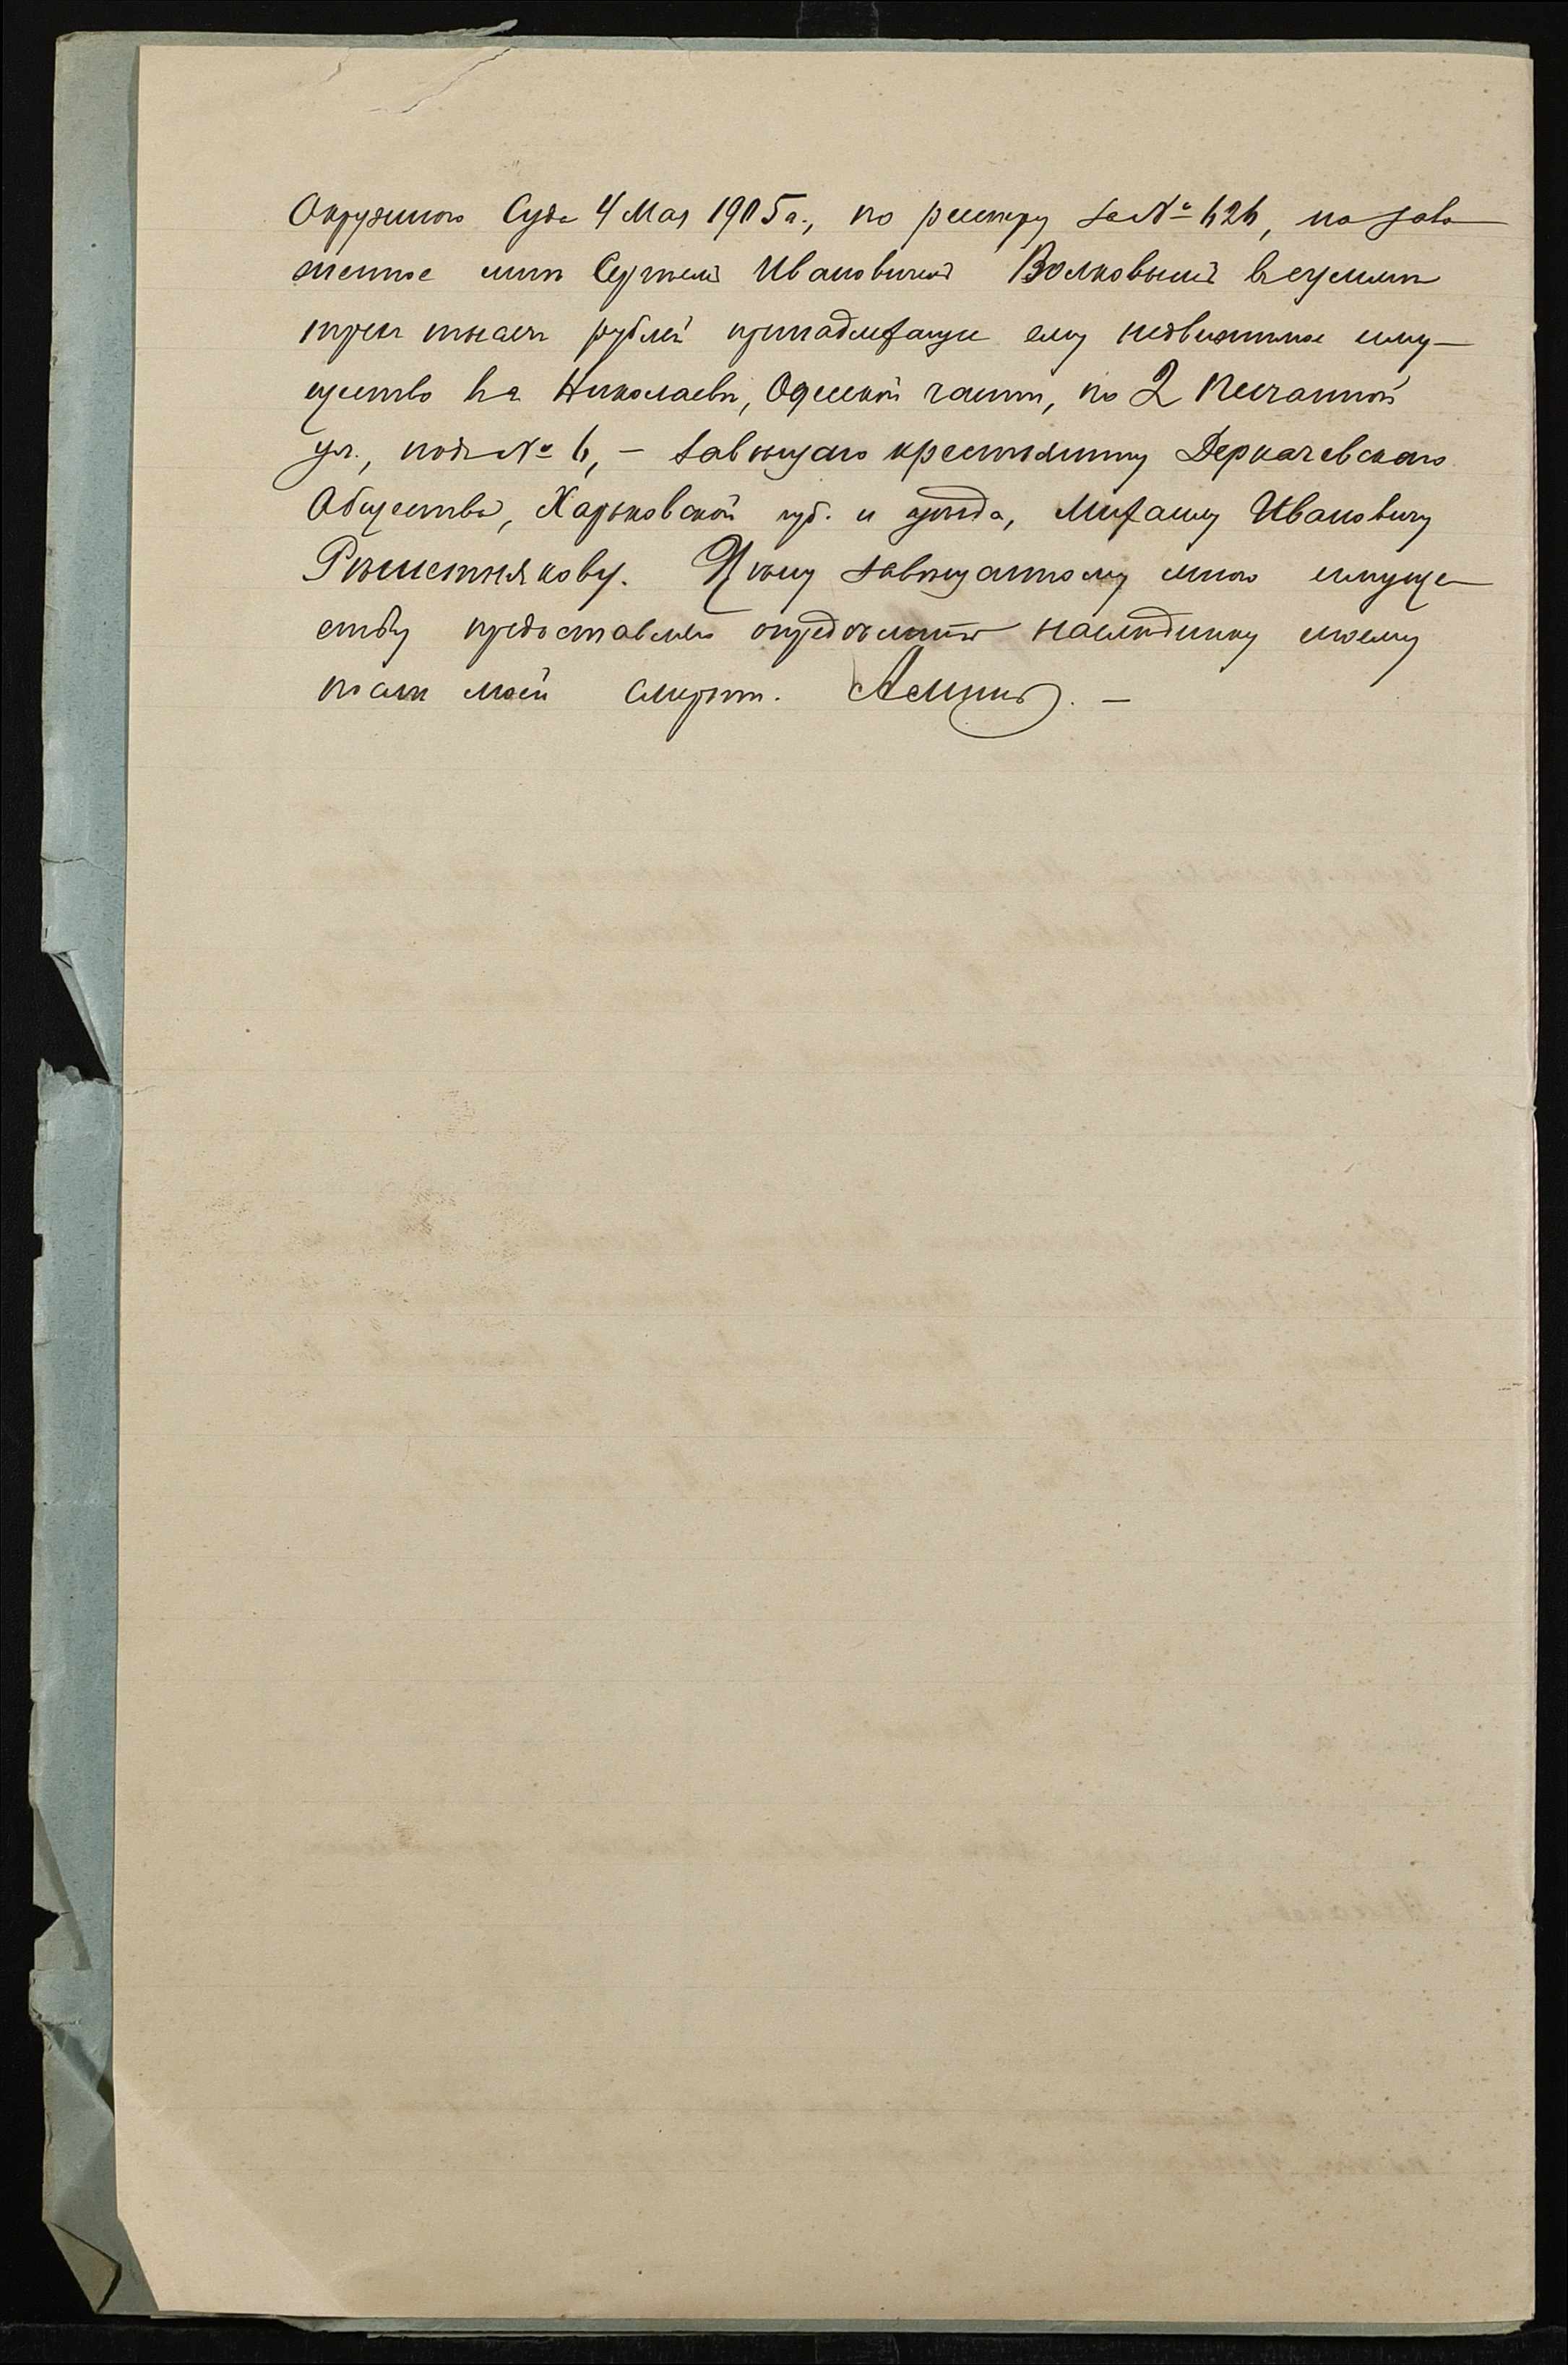 Окружного Суда 4 Мая 1905 г., по реестру за № 626, на зало
женное мнѣ Сергѣемъ Ивановичемъ Волковымъ въ суммѣ
трехъ тысячъ рублей принадлежащее ему недвижимое иму-
щество въ г. Николаевѣ, Одесской части, по 2 Песчанной
ул., подъ № 6, – завѣщаю крестьянину Деркачевскаго
Общества, Харьковской губ. и уѣзда, Михаилу Ивановичу
Рѣшетнякову. Цѣну завѣщанному мною имуще-
ству предоставляю опредѣлить наслѣднику моему
послѣ моей смерти. Аминь. –